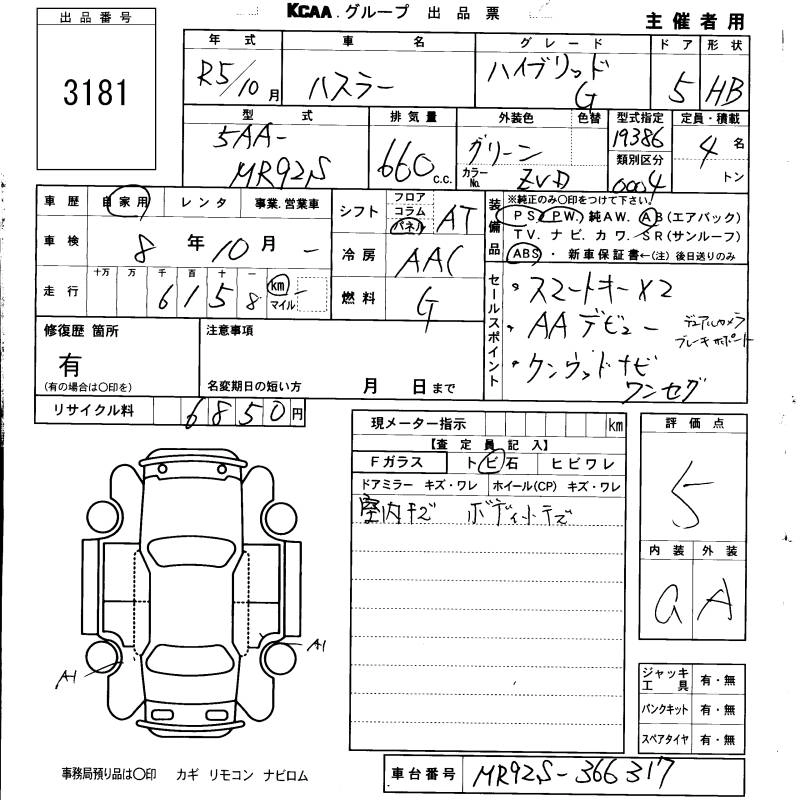 KCAA グループ 出品票
主催者用
出品番号
3181
年式 車名 グレード ドア 形状
R5/10月 ハスラー ハイブリッド G 5 HB
型式 排気量 外装色 色替 型式指定 定員・積載
5AA-MR92S 660 c.c. グリーン 19386 4名
類別区分
カラーNo. ZVD 0004 トン
車歴 自家用 レンタ 事業.営業車
シフト フロア コラム パネル AT
装備品
※純正のみ○印をつけて下さい。
PS. PW. 純AW. AB(エアバック)
TV. ナビ. カワ. SR(サンルーフ)
ABS・新車保証書←(注)後日送りのみ
車検 8年10月 -
冷房 AAC
走行 十万 万 千 百 十 一 km マイル
6158
燃料 G
セールスポイント
・スマートキー×2
・AAデビュー デュアルカメラ
ブレーキサポート
・ケンウッドナビ
ワンセグ
修復歴 箇所
有
(有の場合は○印を)
注意事項
名変期日の短い方 月 日まで
リサイクル料 6850円
現メーター指示 km
【査定員記入】
Fガラス トビ石 ヒビワレ
ドアミラー キズ・ワレ ホイール(CP) キズ・ワレ
室内キズ ボディ小キズ
評価点
5
内装 外装
a A
A1
A1
ジャッキ工具 有・無
パンクキット 有・無
スペアタイヤ 有・無
事務局預り品は○印 カギ リモコン ナビロム
車台番号 MR92S-366317